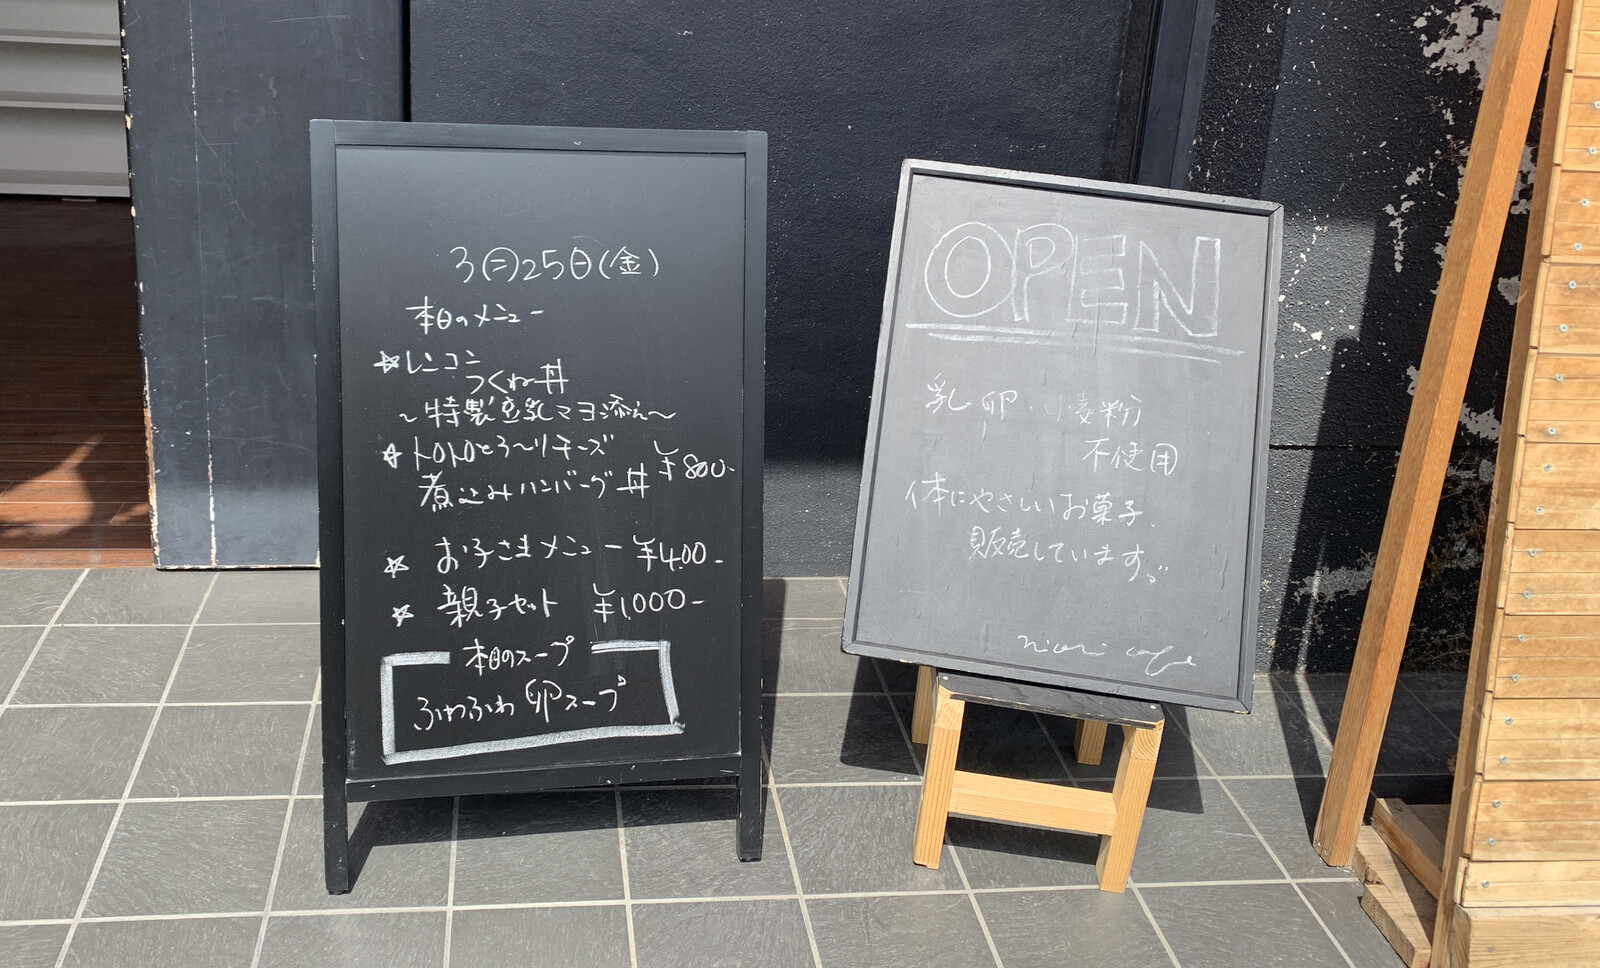 3月25日(金)
本日のメニュー
☆レンコン
つくね丼
~特製豆乳マヨ添え~
☆トロトロとろ~りチーズ
煮込みハンバーグ丼 ¥800-
☆ お子さまメニュー ¥400-
☆ 親子セット ¥1,000-
本日のスープ
ふわふわ卵スープ
OPEN
乳・卵・小麦粉
不使用
体にやさしいお菓子
販売しています。
cafe